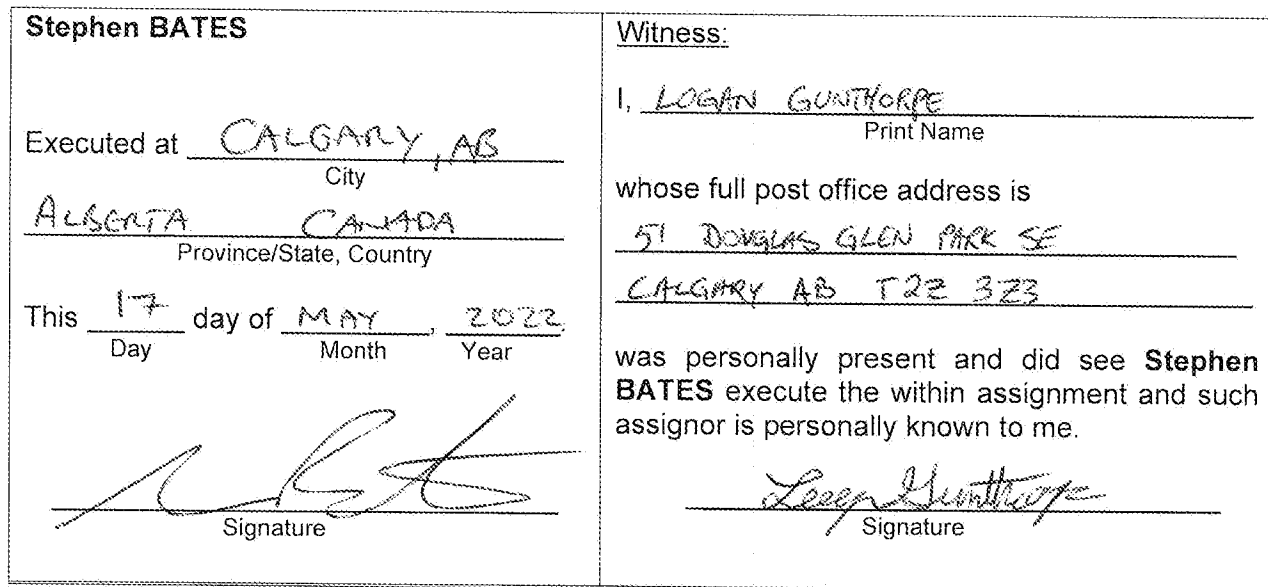 Stephen BATES
Executed at CALGARY, AB
City
ALBERTA CANADA
Province/State, Country
This 17 day of MAY, 2022
Day Month Year
Signature
Witness:
I, LOGAN GUNTHORPE
Print Name
whose full post office address is
51 DOUGLAS GLEN PARK SE
CALGARY AB T2Z 3Z3
was personally present and did see Stephen
BATES execute the within assignment and such
assignor is personally known to me.
Logan Gunthorpe
Signature